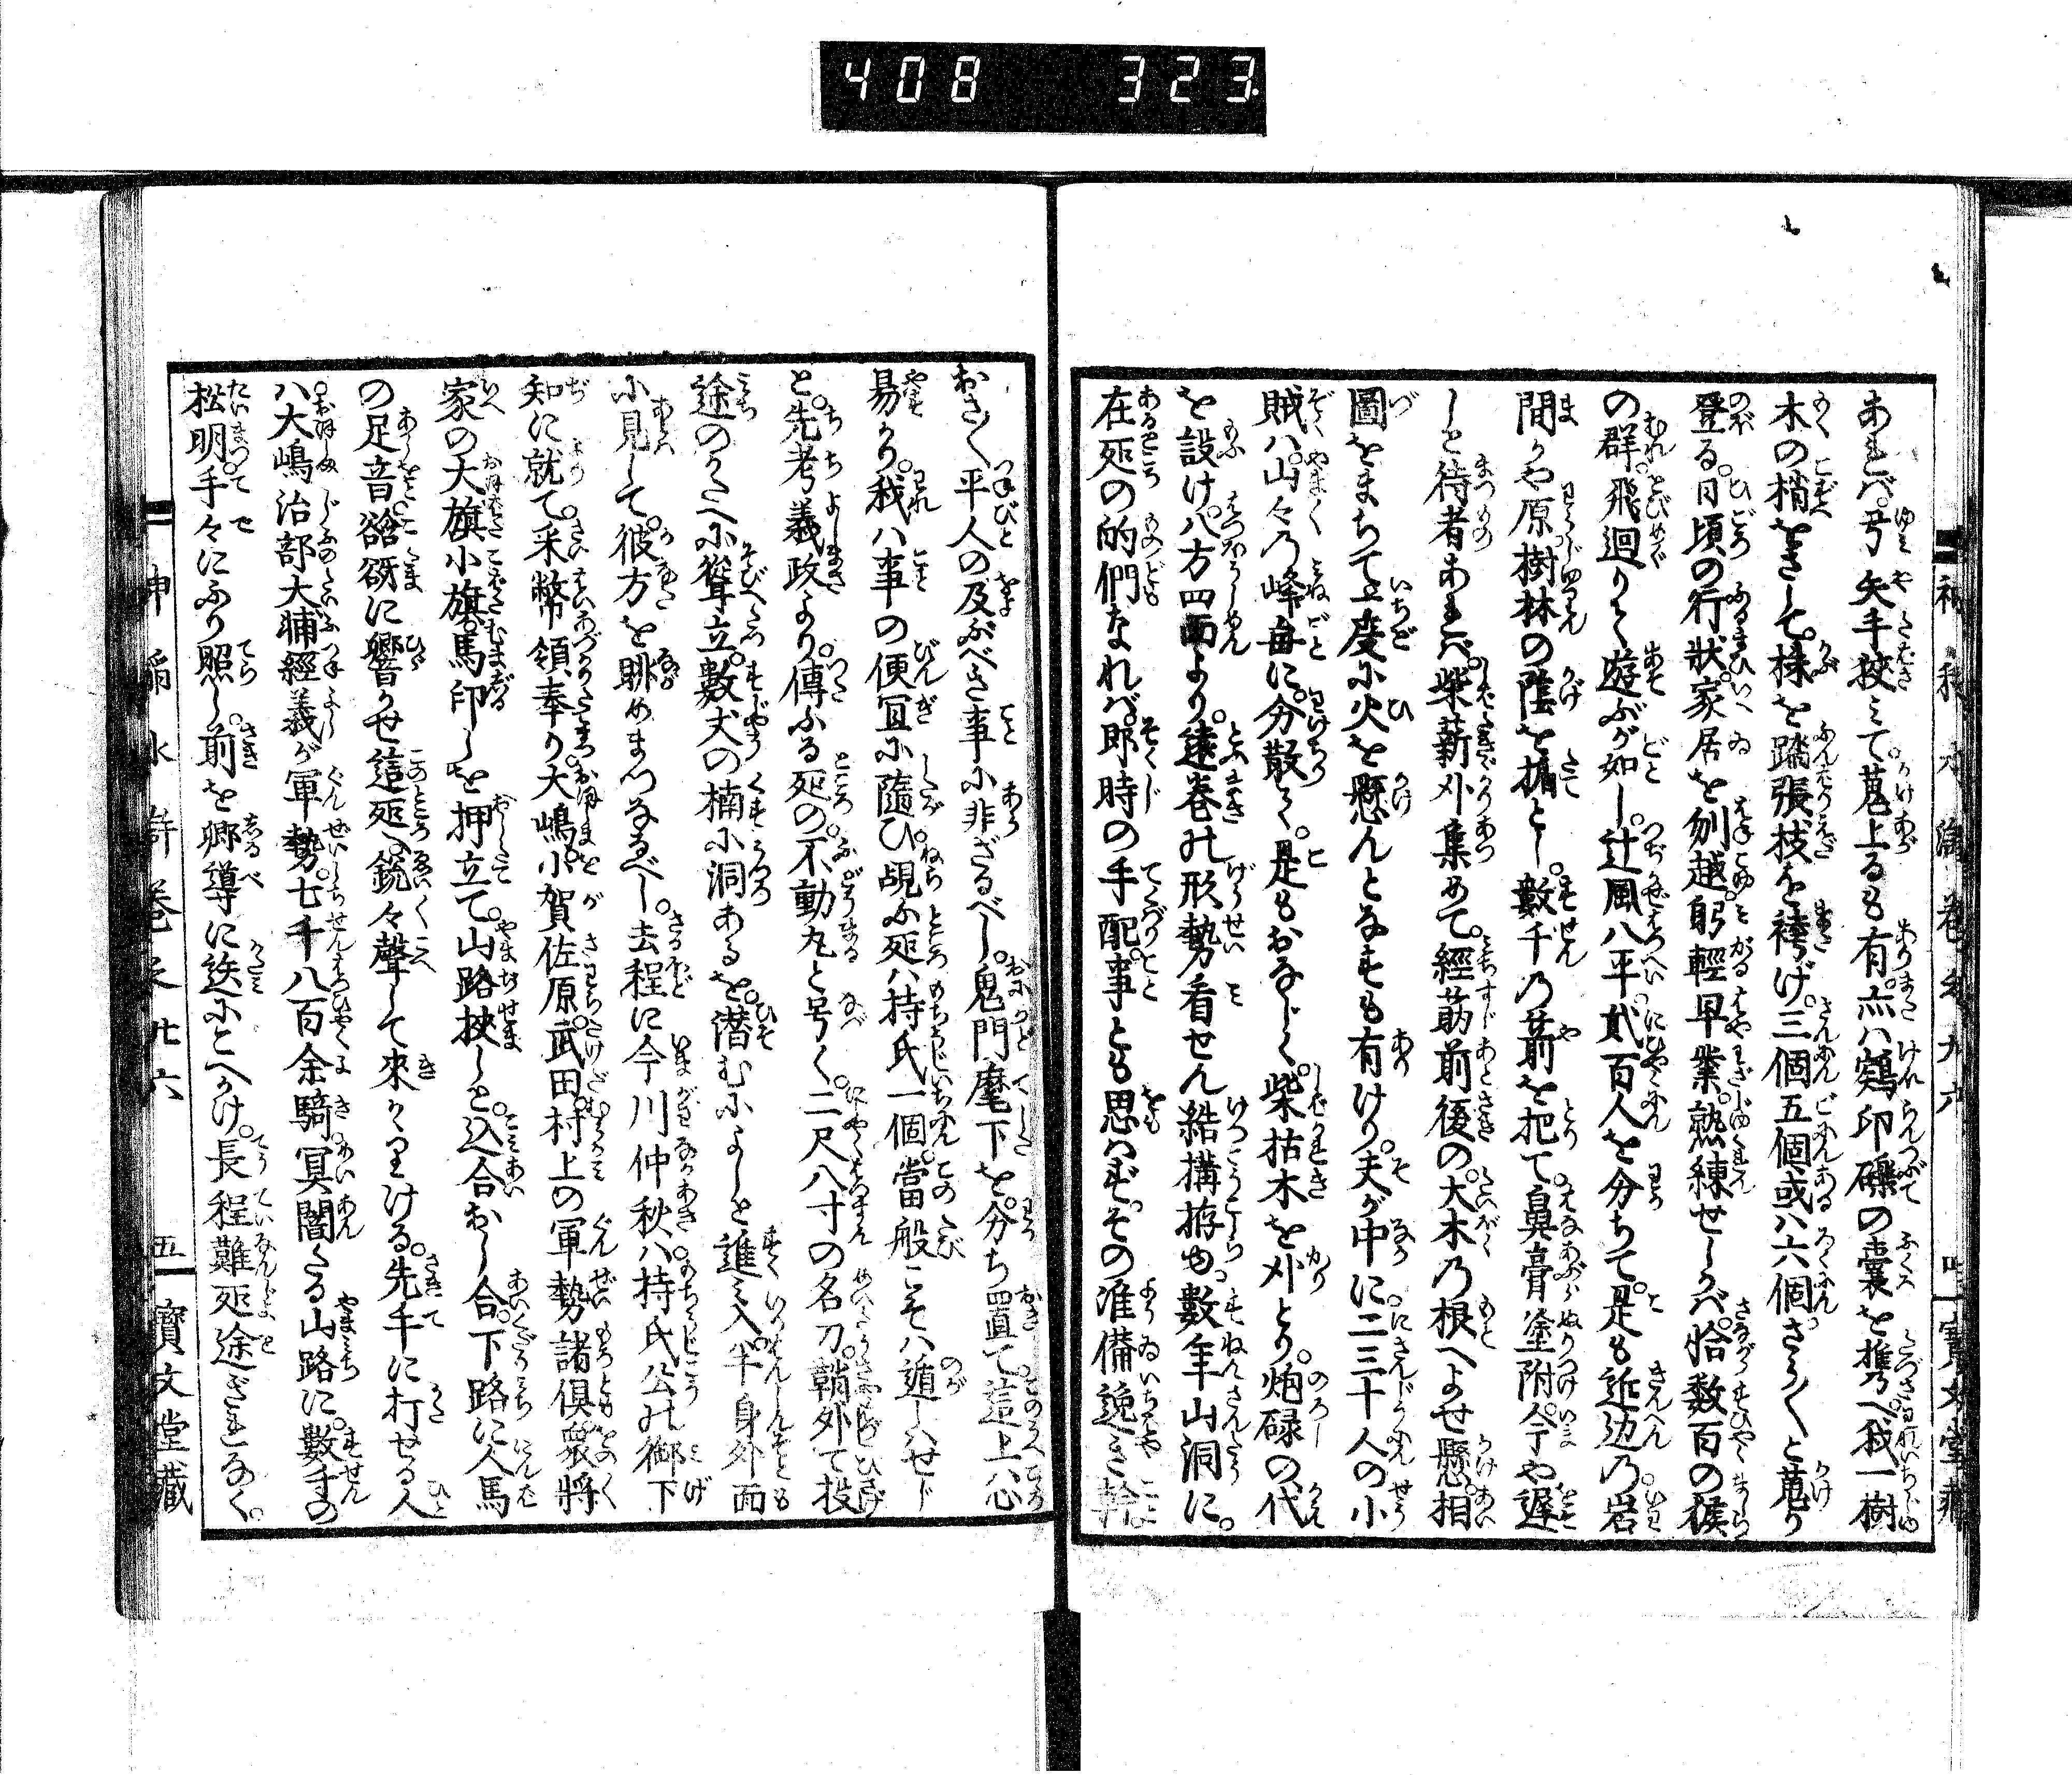 408 323
あれバ。弓矢手挾ミて。鳬上るも有。亦ハ鶏卵礫の嚢を携へ。我一樹
木の梢をさして。株を踏張枝を袴げ。三個五個或ハ六個。さら〳〵と鳬り
登る。日頃の行狀。家居を刎越。躬輕早業。熟練せしかバ。恰数百の猴
の群。飛廻りて遊ぶが如し。辻風八平。貳百人を分ちて。是も近辺の岩
間や原樹林の陰を楯とし。數千の箭を把て。鼻膏塗附。今や遅
しと待者あれバ。柴薪刈集めて。經筋前後の。大木乃根へよせ懸。相
圖をまちて一度に火を懸んとなすも有けり。夫が中に。二三十人の小
賊ハ。山々乃峰毎に。分散て。是もおなじく。柴枯木を刈とり。炮碌の代
を設け。八方四面より。遠巻の形勢看せん結構拵ゆ。數年山洞に。
在処の的們なれバ。即時の手配。事とも思ハず。その准備逸き幹
おさ〳〵平人の及ぶべき事に非ざるべし。鬼門麾下を。分ち置て。這上心
易かり。我ハ事の便宜に隨ひ。覘ふ処ハ持氏一個。當般こそハ遁しハせじ
と。先考義政より。傳ふる処の。不動丸と号く。二尺八寸の名刀。鞘外て投
途のかたへに聳立。數丈の楠に洞あるを。潜むによしと進ミ入。半身外面
に見して。彼方を眺めまつなるべし。去程に今川仲秋ハ。持氏公の御下
知に就て。采幣領奉り。大嶋。小賀。佐原。武田。村上の軍勢諸倶。衆將
家の大旗小旗。馬印しを押立て。山路挾しと。込合おし合。下路に人馬
の足音谺に響かせ。這処へ鋭々聲して來かゝりける。先手に打せる人
ハ。大嶋治部大輔經義が軍勢。七千八百余騎。冥闇たる山路に。數千の
松明手々にふり照し。前を郷導に迭にとへかけ。長程難処途ぎれなく。
神稲水滸巻之廿六 五 寶文堂藏